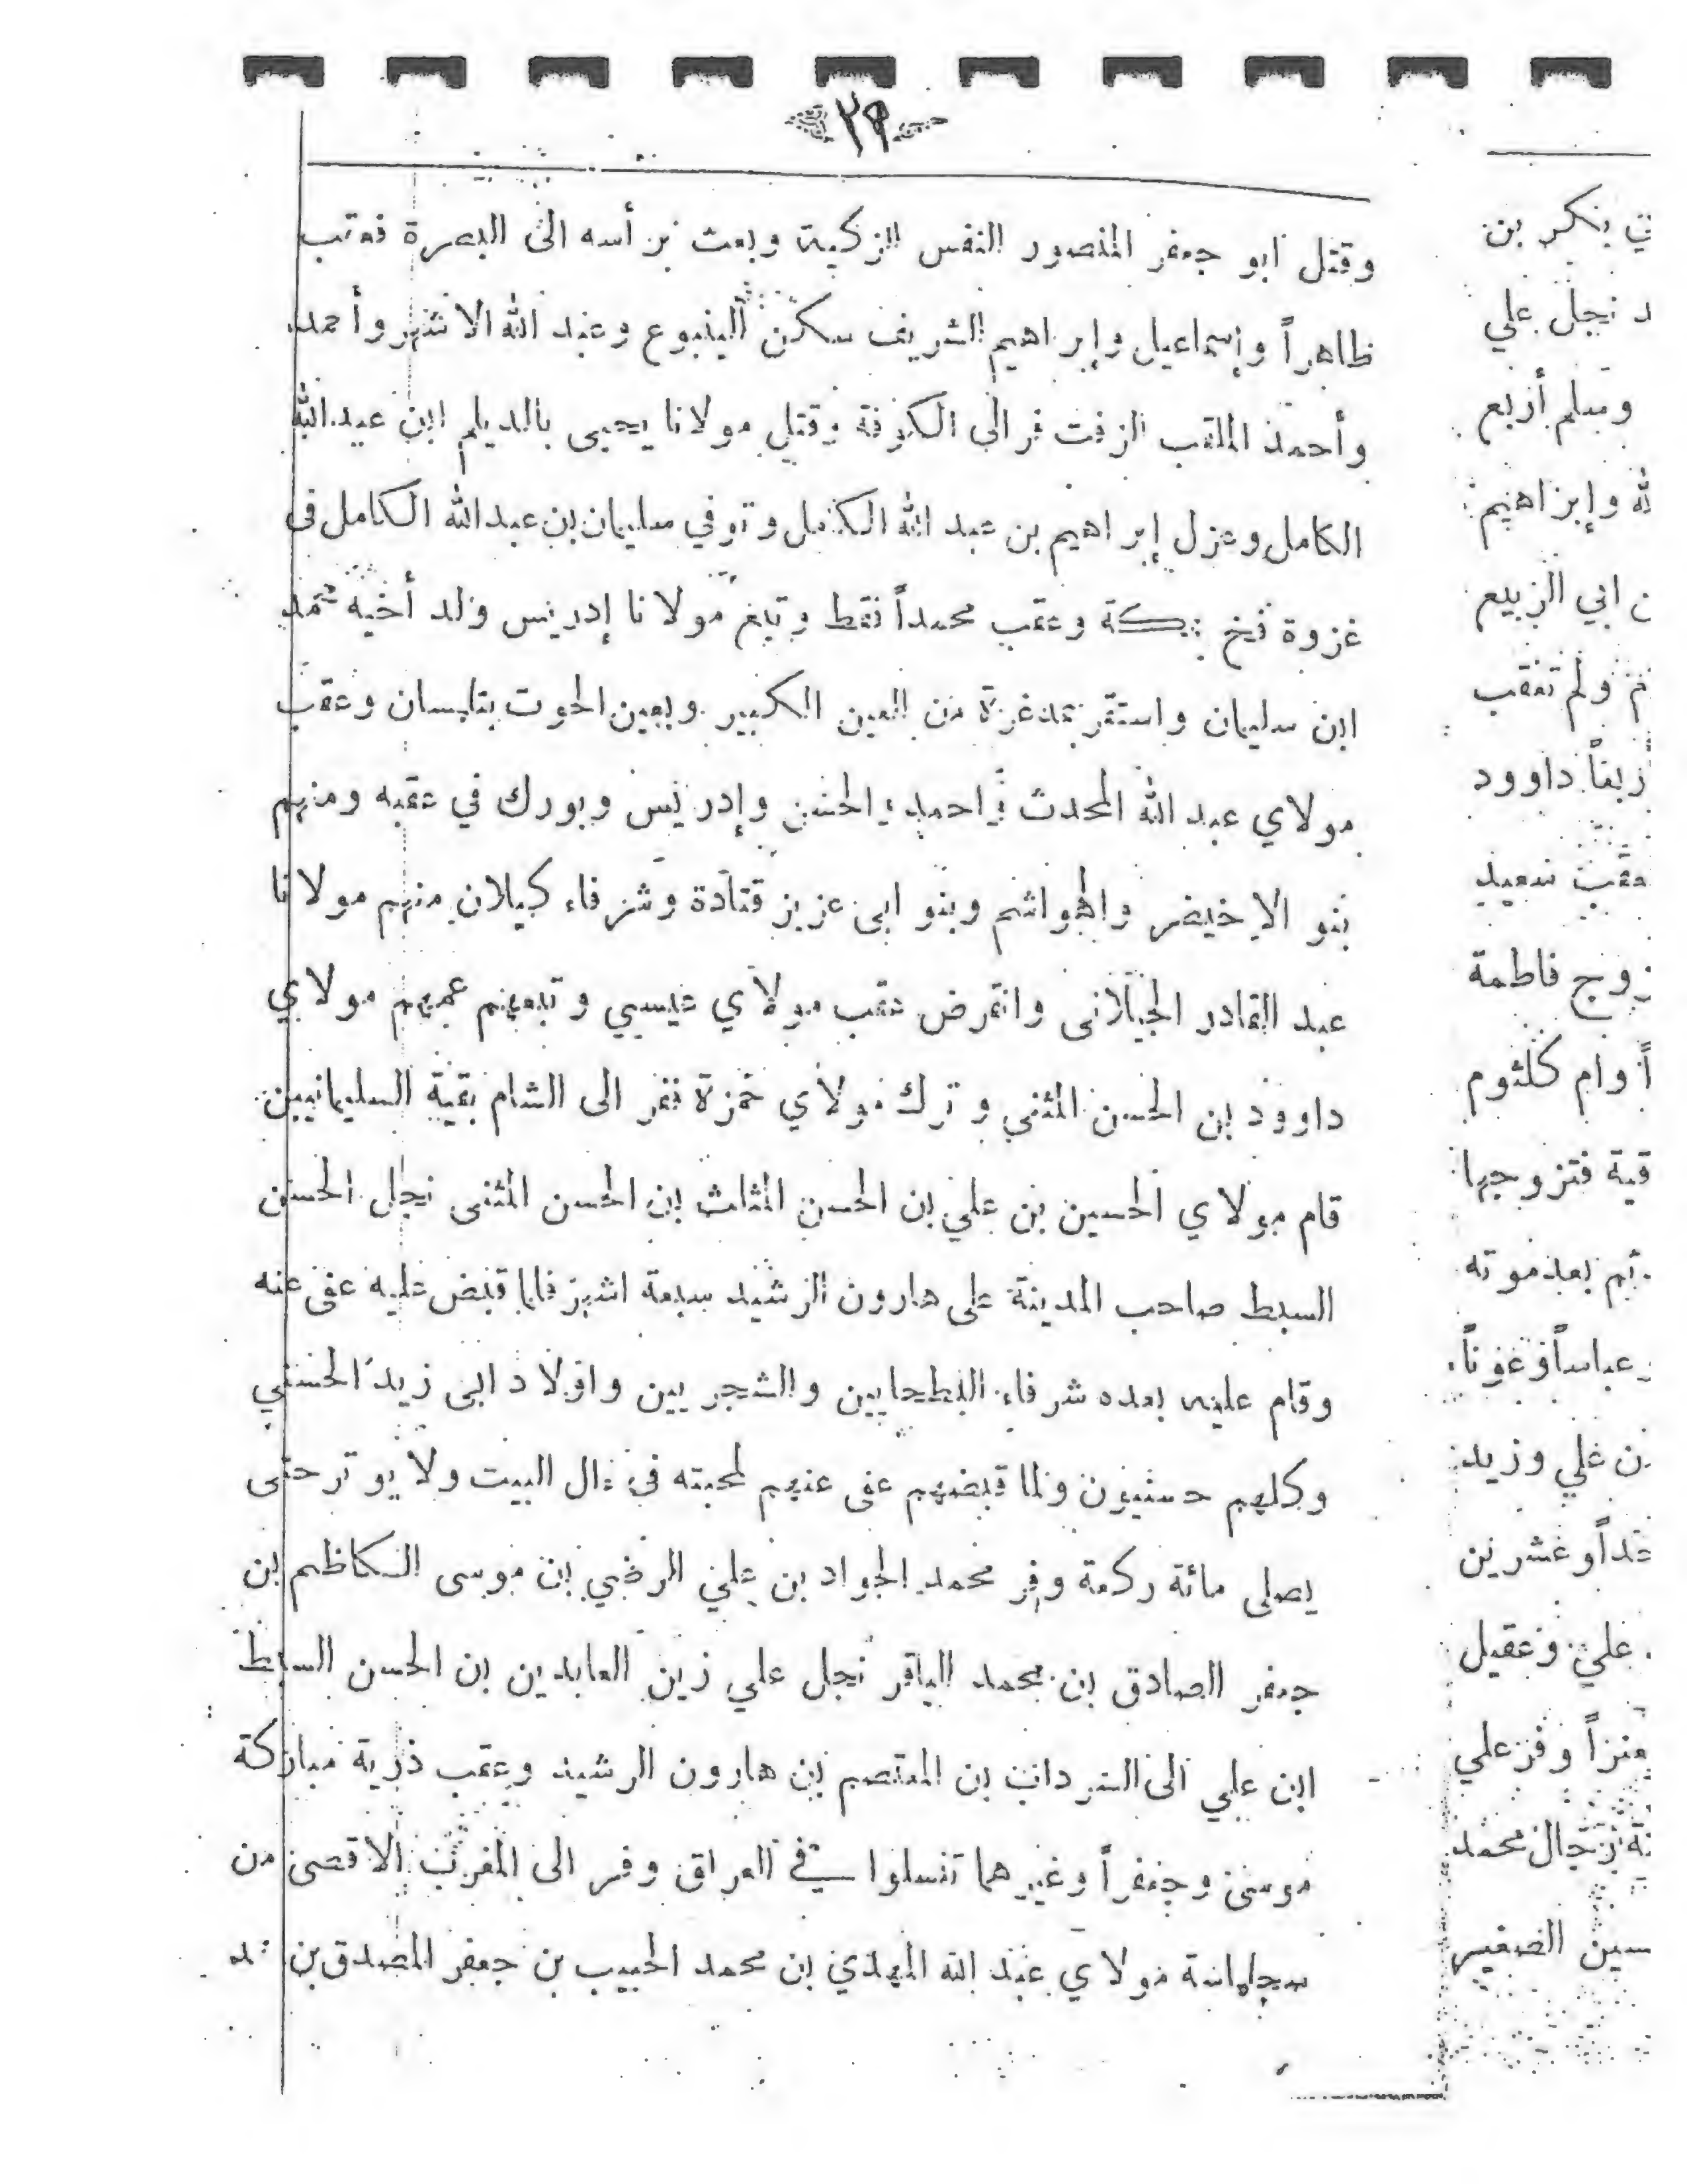 ٢٩
وقتل ابو جعفر المنصور النفس الزكية وبعث برأسه الى البصرة فعقب
طاهراً وإسماعيل وإبراهيم الشريف سكن الينبوع وعبد الله الاشتر وأحمد
وأحمد الملقب الزفت فر الى الكوفة وقتل مولانا يحيى بالديلم ابن عبد الله
الكامل وعزل إبراهيم بن عبد الله الكامل وتوفي سليمان بن عبد الله الكامل فى
غزوة فخ بمكة وعقب محمداً فقط وتبع مولانا إدريس ولد أخيه محمد
ابن سليمان واستقر من العين الكبير وبعين الحوت بتلمسان وعقب
مولاي عبد الله المحدث احمد الحسن وإدريس وبورك في عقبه ومنهم
بنو الاخيضر والهواشم وبنو ابى عزيز قتادة وشرفاء كيلان منهم مولانا
عبد القادر الجيلانى وانقرض عقب مولاي عيسى وتبعهم عمهم مولاي
داوود بن الحسن المثنى وترك مولاي حمزة نفر الى الشام بقية السليمانيين
قام مولاي الحسين بن علي بن الحسن المثلث بن الحسن المثنى نجل الحسن
السبط صاحب المدينة على هارون الرشيد سبعة اشهر فلما قبض عليه عفى عنه
وقام عليه بعده شرفاء البطحايين والشجريين واولاد ابى زيد الحسني
وكلهم حسنيون ولما قبضهم عفى عنهم لمحبته فى ءال البيت ولا يوتر حتى
يصلى مائة ركعة وفر محمد الجواد بن علي الرضي بن موسى الكاظم بن
جعفر الصادق بن محمد الباقر نجل علي زين العابدين بن الحسن السبط
ابن علي الى بن المعتصم بن هارون الرشيد وعقب ذرية مباركة
موسى وجعفراً وغيرهما تنسلوا في العراق وفر الى المغرب الاقصى من
سجلماسة مولاي عبد الله المهدي بن محمد الحبيب بن جعفر المصدق بن
بكر بن
نجل علي
ومسلم أربع
وإبراهيم
ابي الربيع
ولم تعقب
داوود
سعيد
فاطمة
وام كلثوم
فتزوجها
ثم بعد موته
عباساً وعوناً
علي وزيد
وعشرين
علي وعقيل
وفر علي
محمد
الصغير